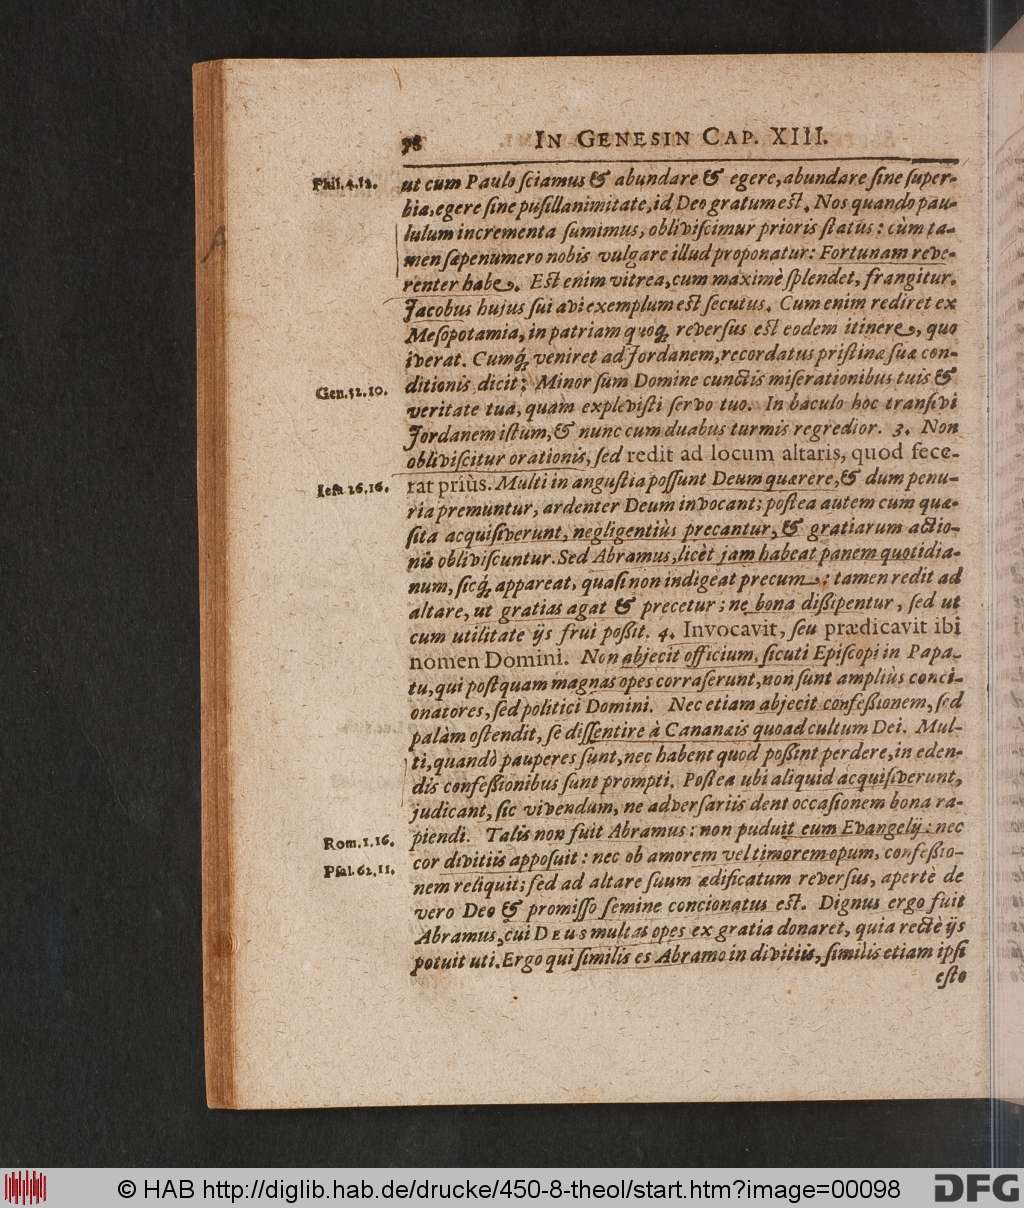 78 IN GENESIN CAP. XIII.
Phil. 4. 12. ut cum Paulo sciamus & abundare & egere, abundare sine super-
bia, egere sine pusillanimitate, id Deo gratum est. Nos quando pau-
lulum incrementa sumimus, obliviscimur prioris status: cùm ta-
men sæpenumero nobis vulgare illud proponatur: Fortunam reve-
renter habe. Est enim vitrea, cum maximè splendet, frangitur.
Jacobus hujus sui avi exemplum est secutus. Cum enim rediret ex
Mesopotamia, in patriam quoq; reversus est eodem itinere, quo
iverat. Cumq́; veniret ad Jordanem, recordatus pristinæ suæ con-
Gen. 32. 10. ditionis dicit: Minor sum Domine cunctis miserationibus tuis &
veritate tua, quàm explevisti servo tuo. In baculo hoc transivi
Jordanem istum, & nunc cum duabus turmis regredior. 3. Non
obliviscitur orationis, sed redit ad locum altaris, quod fece-
Iesa. 26. 16. rat priùs. Multi in angustia possunt Deum quærere, & dum penu-
ria premuntur, ardenter Deum invocant; postea autem cum quæ-
sita acquisiverunt, negligentiùs precantur, & gratiarum actio-
nis obliviscuntur. Sed Abramus, licèt jam habeat panem quotidia-
num, sicq́; appareat, quasi non indigeat precum: tamen redit ad
altare, ut gratias agat & precetur; ne bona dissipentur, sed ut
cum utilitate ijs frui possit. 4. Invocavit, seu prædicavit ibi
nomen Domini. Non abjecit officium, sicuti Episcopi in Papa-
tu, qui postquam magnas opes corraserunt, non sunt ampliùs conci-
onatores, sed politici Domini. Nec etiam abjecit confessionem, sed
palàm ostendit, se dissentire à Cananæis quoad cultum Dei. Mul-
ti, quandò pauperes sunt, nec habent quod possint perdere, in eden-
dis confessionibus sunt prompti. Postea ubi aliquid acquisiverunt,
judicant, sic vivendum, ne adversariis dent occasionem bona ra-
Rom. 1. 16. piendi. Talis non fuit Abramus: non puduit eum Evangelij: nec
Psal. 62. 11. cor divitiis apposuit: nec ob amorem vel timorem opum, confessio-
nem reliquit; sed ad altare suum ædificatum reversus, apertè de
vero Deo & promisso semine concionatus est. Dignus ergo fuit
Abramus, cui DEUS multas opes ex gratia donaret, quia rectè ijs
potuit uti. Ergo qui similis es Abramo in divitiis, similis etiam ipsi
esto
© HAB http://diglib.hab.de/drucke/450-8-theol/start.htm?image=00098
DFG